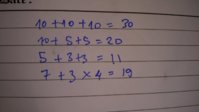 10 + 10 + 10 = 30
10 + 5 + 5 = 20
5 + 3 + 3 = 11
7 + 3 × 4 = 19